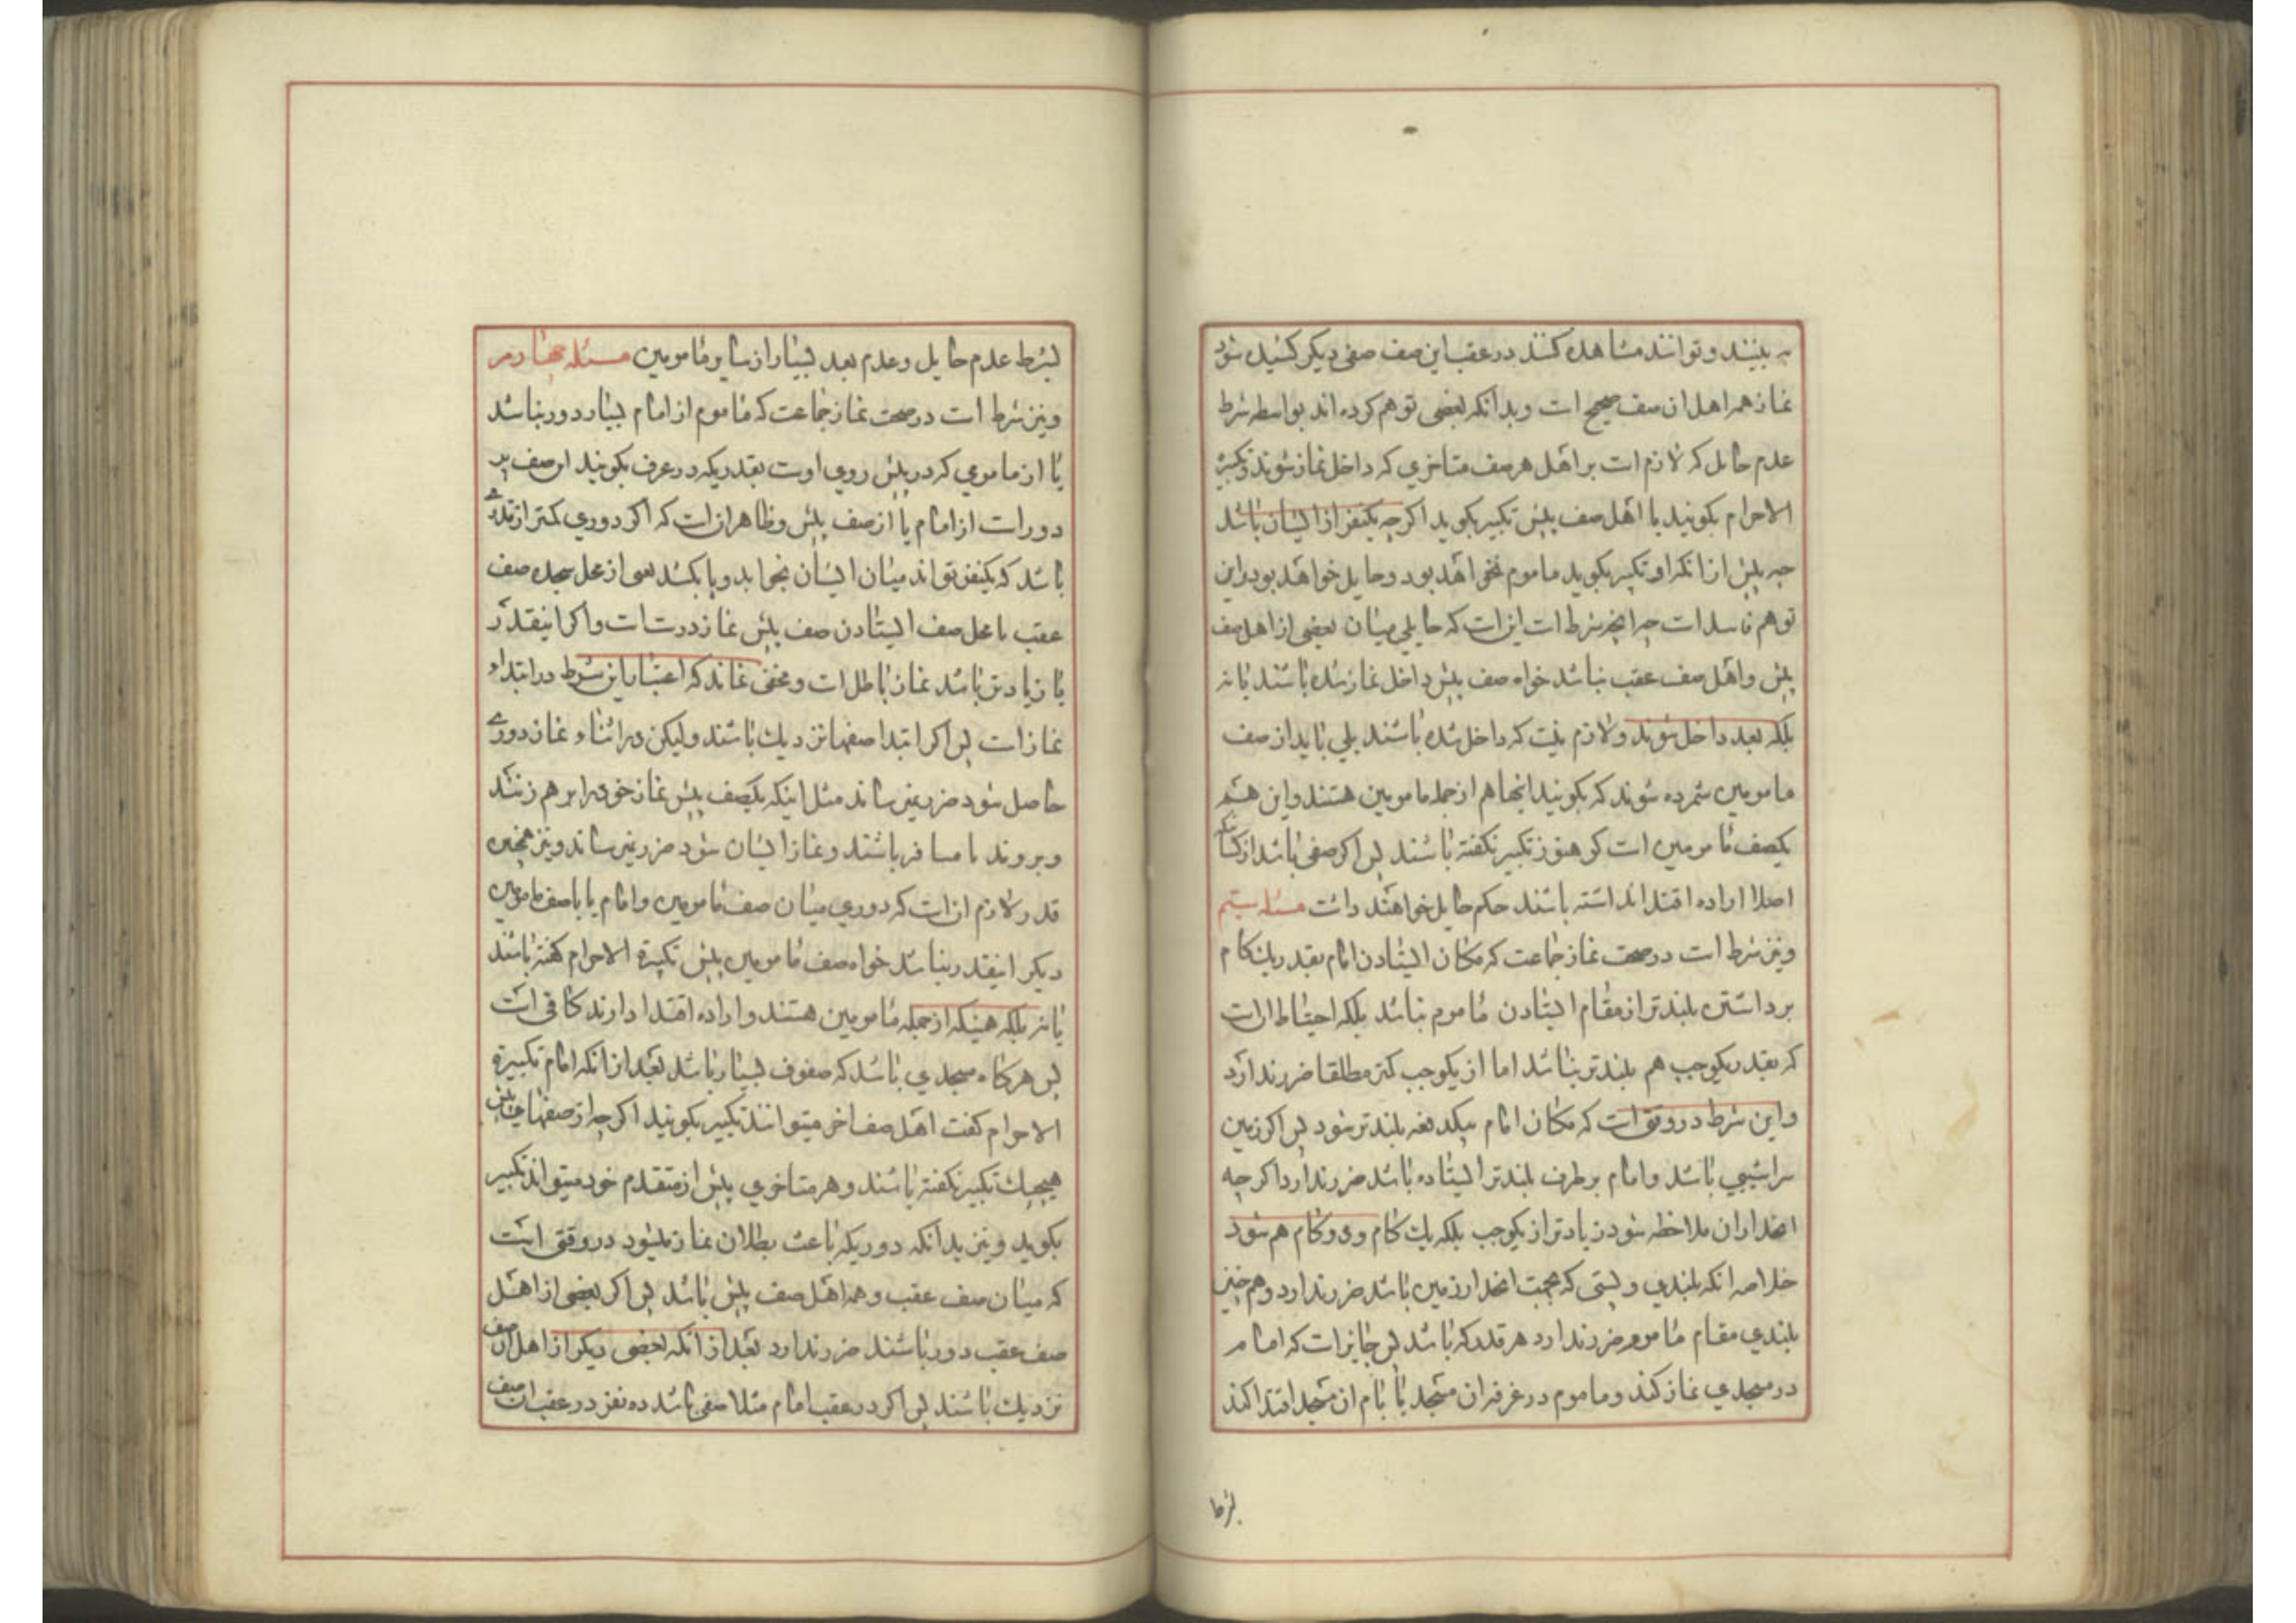 به بینند و توانند مشاهده کنند در عقب این صف صفی دیگر کشیده شود
نماز همه اهل ان صف صحیح است و بدانکه بعضی توهم کرده اند بواسطه شرط
عدم حایل که لازم است بر اهل هر صف متاخری که داخل نماز شوند و تکبیرة
الاحرام بکویند با اهل صف پیش تکبیر بکوید اکرچه یکنفر از ایشان باشد
چه پیش از انکه او تکبیر بکوید ماموم نخواهد بود و حایل خواهد بود و این
توهم فاسد است چه انچه شرط است این است که حایلی میان بعضی از اهل صف
پیش و اهل صف عقب نباشد خواه صف پیش داخل نماز شده باشند یا نه
بلکه بعد داخل شوند و لازم نیست که داخل شده باشند بلی باید از صف
مامومین شمرده شوند که بکویند اینها هم از جمله مامومین هستند و این هم
یکصف مامومین است کو هنوز تکبیر نکفته باشند پس اکر صفی باشد از کسانیکه
اصلا اراده اقتدا نداشته باشند حکم حایل خواهند داشت مسئله سیم
و نیز شرط است در صحت نماز جماعت که مکان ایستادن امام بقدر یک کام
برداشتن بلندتر از مقام ایستادن ماموم نباشد بلکه احتیاط ان است
که بقدر یکوجب هم بلندتر نباشد اما از یکوجب کمتر مطلقا ضرر ندارد
و این شرط در وقتی است که مکان امام بیکدفعه بلندتر شود پس اکر زمین
سراشیبی باشد و امام بر طرف بلندتر ایستاده باشد ضرر ندارد اکرچه
انحدار ان ملاحظه شود زیادتر از یکوجب بلکه یک کام و دو کام هم شود
خلاصه انکه بلندی و پستی که بجهت انحدار زمین باشد ضرر ندارد و هم چنین
بلندی مقام ماموم ضرر ندارد هر قدر که باشد پس جایز است که امام
در مسجدی نماز کند و ماموم در غرفه ان مسجد یا بام ان مسجد اقتدا کند
بشرط
بشرط عدم حایل و عدم بعد بسیار از سایر مامومین مسئله چهارم
و نیز شرط است در صحت نماز جماعت که ماموم از امام بسیار دور نباشد
یا از مامومی که در پیش روی اوست بقدریکه در عرف بکویند این صف
دور است از امام یا از صف پیش و ظاهر ان است که اکر دوری کمتر از قدری
باشد که یکنفر تواند میان ایشان بخوابد و پا بکشد یعنی از محل سجده صف
عقب تا محل صف ایستادن صف پیش نماز درست است و اکر اینقدر
یا زیادتر باشد نماز باطل است و مخفی نماند که اعتبار این شرط در ابتداء
نماز است پس اکر ابتدا صفها نزدیک باشند ولیکن در اثناء نماز دوری
حاصل شود ضرر نمیرساند مثل اینکه یکصف پیش نماز خود را بر هم زنند
و بروند یا مسافر باشند و نماز ایشان شود ضرر نمیرساند و نیز همچنین
قدر لازم ان است که دوری میان صف مامومین و امام یا با صف مامومین
دیکر اینقدر نباشد خواه صف مامومین پیش تکبیرة الاحرام کفته باشند
یا نه بلکه همینکه از جمله مامومین هستند و اراده اقتدا دارند کافی است
پس هرکاه مسجدی باشد که صفوف بسیار باشد بعد از انکه امام تکبیرة
الاحرام کفت اهل صف اخر میتوانند تکبیر بکویند اکرچه از صفهای پیش
هیچیک تکبیر نکفته باشند و هر متاخری پیش از متقدم خود میتواند تکبیر
بکوید و نیز بدانکه دوریکه باعث بطلان نماز میشود در وقتی است
که میان صف عقب و همه اهل صف پیش باشد پس اکر بعضی از اهل
صف عقب دور باشند ضرر ندارد بعد از انکه بعضی دیکر از اهل ان صف
نزدیک باشند پس اکر در عقب امام مثلا صفی باشد ده نفر در عقب ان صف